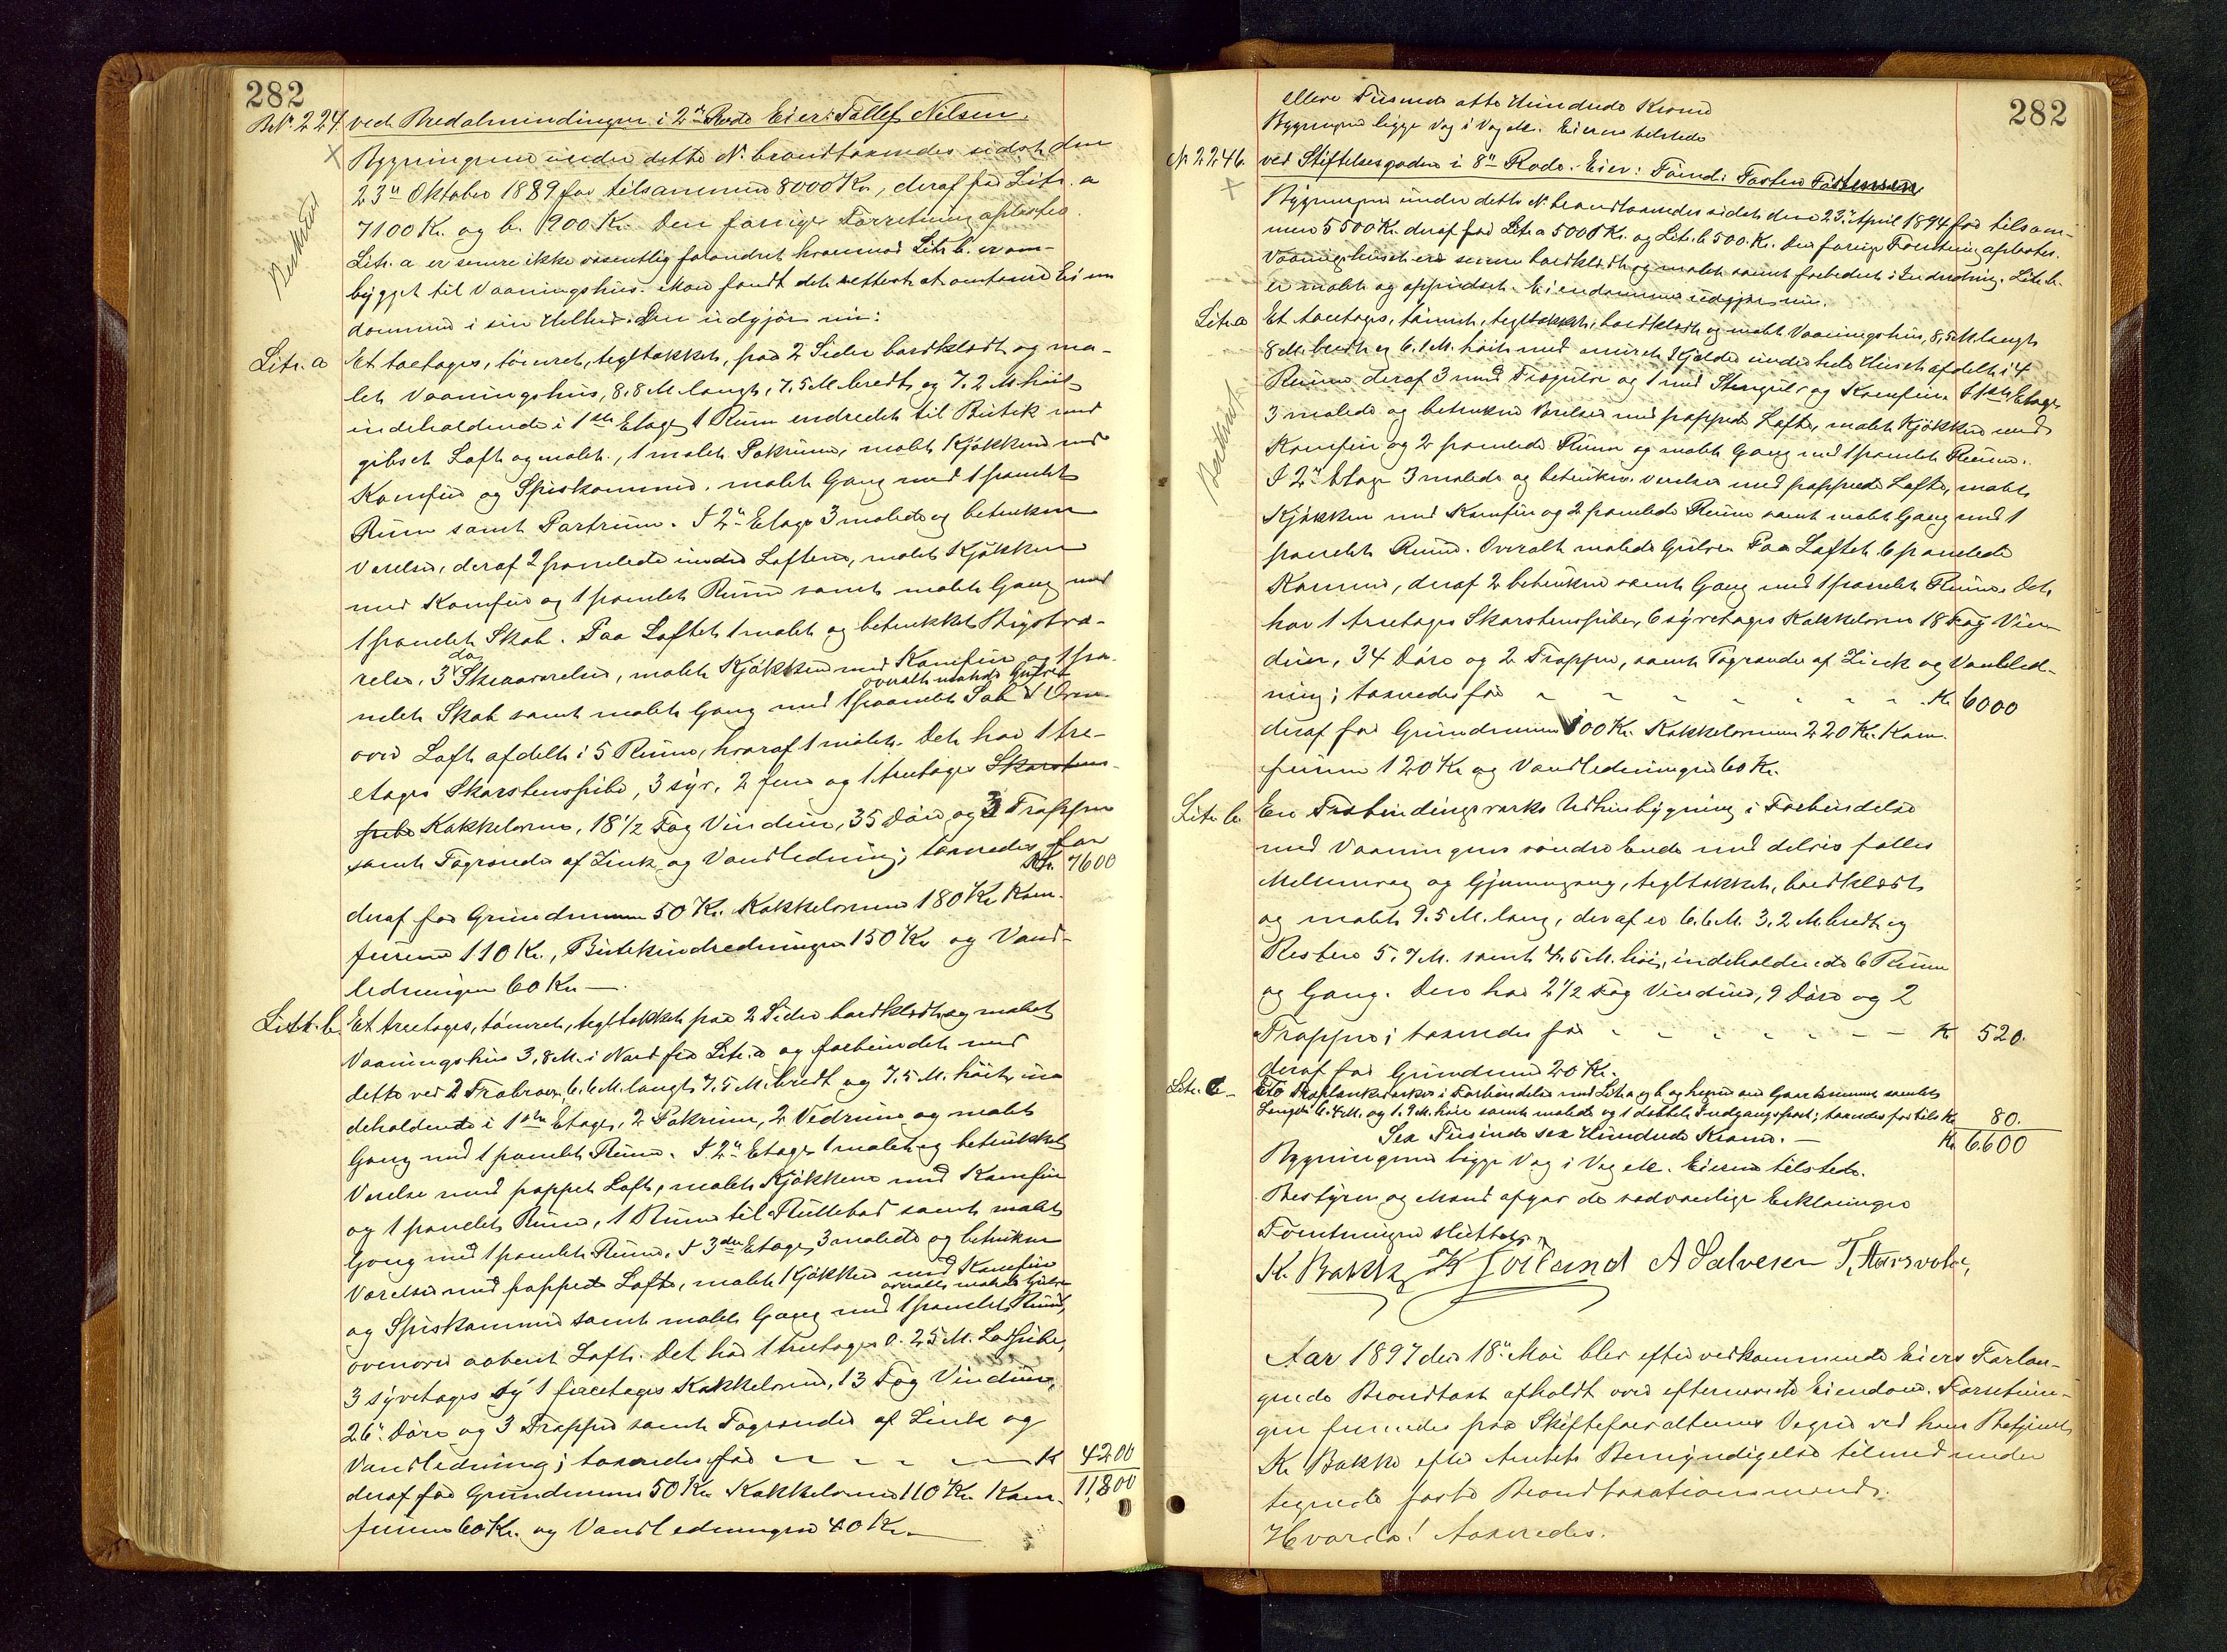 282
Br. Nr. 224. ved Bredalmindingen i 2n Rode Eier: Tallef Nilsen.
Bygningerne under dette Nr. brandtaxeredes sidst den
23n Oktober 1889 for tilsammen 8000 Kr., deraf for Litr. a
7100 Kr. og b. 900 Kr. Den forrige Forretning oplæstes.
Beskrevet
Litr. a er senere ikke væsentlig forandret hvorimod Litr. b. er om-
bygget til Vaaningshus. Man fandt det rettest at omtaxere Eien
dommen i sin Helhed. Den udgjør nu:
Litr. a Et toetages, tømret, tegltækket, paa 2 Sider bordklædt og ma-
let Vaaningshus, 8,8 M. langt, 7,5 M. bredt og 7,2 M. høit
indeholdende i 1ste Etage 1 Rum indredet til Butik med
gibset Loft og malet, 1 malet Pakrum, malet Kjøkken med
Komfur og Spiskammer, malet Gang med 1 panelet
Rum samt Portrum. I 2n Etage 3 malede og betrukne
Værelser, deraf 2 panelede under Loftene, malet Kjøkken
med Komfur og 1 panelet Rum samt malet Gang med
1 panelet Skab. Paa Loftet 1 malet og betrukket Kvistvæ-
relse, 3 do Skraaværelser, malet Kjøkken med Komfur og 1 pa-
overalt malede Gulve
nelet Skab samt malet Gang med 1 panelet Skab. Oven-
over Loft afdelt i 5 Rum, hvoraf 1 malet. Det har 1 tre-
etages Skorstenspibe, 3 syv, 2 fem og 1 treetages Skorstens-
pibe Kakkelovne, 18 1/2 Fag Vinduer, 35 Døre og 3 Trapper
samt Tagrender af Zink og Vandledning; taxeredes for
Kr. 7600
deraf for Grundmuren 50 Kr. Kakkelovnene 180 Kr. Kom-
furene 110 Kr., Butikindredningen 150 Kr. og Vand-
ledningen 60 Kr. —
Litr. b. Et treetages, tømret, tegltækket paa 2 Sider bordklædt og malet
Vaaningshus 3,8 M. i Nord fra Litr. a og forbundet med
dette ved 2 Træbroer, 6,6 M. langt, 7,5 M. bredt og 7,5 M. høit, in-
deholdende i 1ste Etage, 2 Pakrum, 2 Vedrum og malet
Gang med 1 panelet Rum. I 2n Etage 1 malet og betrukket
Værelse med pappet Loft, malet Kjøkken med Komfur
og 1 panelet Rum, 1 Rum til Rullebod samt malet
Gang med 1 panelet Rum. I 3die Etage 3 malede og betrukne
Værelser med pappede Lofte, malet Kjøkken med Komfur
overalt malede Gulve
og Spiskammer samt malet Gang med 1 panelet Rum,
ovenover aabent Loft. Det har 1 treetages 0.25 M. Lodpibe,
3 syvetages og 1 fireetages Kakkelovne, 13 Fag Vinduer,
26 Døre og 3 Trapper samt Tagrender af Zink og
Vandledning; taxeredes for Kr 4200
deraf for Grundmuren 50 Kr. Kakkelovnene 110 Kr. Kom- 11,800
furene 60 Kr. og Vandledningen 40 Kr.
282
elleve Tusinde otte Hundrede Kroner
Bygningerne ligge Væg i Væg etc. Eieren tilstede
Nr. 2246. ved Stiftelsesgaden i 8n Rode. Eier: Tømd: Torsten Torstensen
Bygningerne under dette Nr. brandtaxeredes sidst den 23. April 1894 for tilsam-
men 5500 Kr. deraf for Litr. a 5000 Kr. og Litr. b 500 Kr. Den forrige Forretning oplæstes.
Vaaningshuset er senere bordklædt og malet samt forbedret i Indredning. Litr. b.
er malet og oppudset. Eiendommen udgjør nu.
Litr. a Et toetages, tømret, tegltækket, bordklædt og malet Vaaningshus, 8,5 M. langt
8 M. bredt og 6.1 M. høit med muret Kjelder under hele Huset afdelt i 4
Rum deraf 3 med Trægulve og 1 med Stengulv og Komfur. I 1ste Etage
Beskrevet
3 malede og betrukne Værelser med pappede Lofte, malet Kjøkken med
Komfur og 2 panelede Rum og malet Gang med 1 panelet Rum.
I 2n Etage 3 malede og betrukne Værelser med pappede Lofte, malet
Kjøkken med Komfur og 2 panelede Rum samt malet Gang med 1
panelet Rum. Overalt malede Gulve. Paa Loftet 6 panelede
Kamre, deraf 2 betrukne samt Gang med 1 panelet Rum. Det
har 1 treetages Skorstenspibe, 6 syvetages Kakkelovne 18 Fag Vin-
duer, 34 Døre og 2 Trapper, samt Tagrender af Zink og Vandled-
ning; taxeredes for Kr. 6000
deraf for Grundmuren 100 Kr. Kakkelovnene 220 Kr. Kom-
furene 120 Kr og Vandledningen 60 Kr.
Litr. b. En Træbindingsværks Udhusbygning i Forbindelse
med Vaaningens søndre Ende med delvis fælles
Mellemvæg og Gjennemgang, tegltækket, bordklædt
og malet 9.5 M. lang, deraf er 6.6 M. 3,2 M. bredt og
Resten 5.7 M. samt 4.5 M. høi, indeholdende 6 Rum
og Gang. Den har 2 1/2 Fag Vinduer, 9 Døre og 2
Trapper; taxeredes for Kr 520.
deraf for Grundmur 20 Kr.
Litr. c – To Træplankeværker i Forbindelse med Litr. a og b og hegner om Gaardsrummet samlet
Længde 6.4 M. og 1.9 M. høie samt malede og 1 dobbelt Indgangsport; taxeredes for tils Kr. 80.
Sex Tusinde sex Hundrede Kroner. — Kr 6600
Bygningerne ligge Væg i Væg etc. Eieren tilstede.
Bestyrer og Mænd afgav de sædvanlige Erklæringer
Forretningen sluttet
K. Bakke A Salvesen
Aar 1897 den 18n Mai blev efter vedkommende Eiers Forlan-
gende Brandtaxt afholdt over efternævnte Eiendom. Forretnin-
gen fremmedes paa Skiftefoervalterens Vegne ved hans Betjent
K. Bakke efter Amtets Bemyndigelse tilligemed under
tegnede faste Brandtaxationsmænd.
Hvorda! taxeredes.